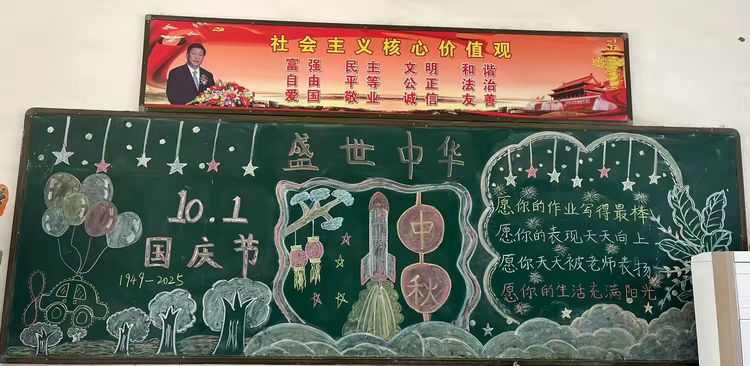 社会主义核心价值观
富强 民主 文明 和谐
自由 平等 公正 法治
爱国 敬业 诚信 友善
盛世中华
10.1
国庆节
1949-2025
中秋
愿你的作业写得最棒
愿你的表现天天向上
愿你天天被老师表扬
愿你的生活充满阳光